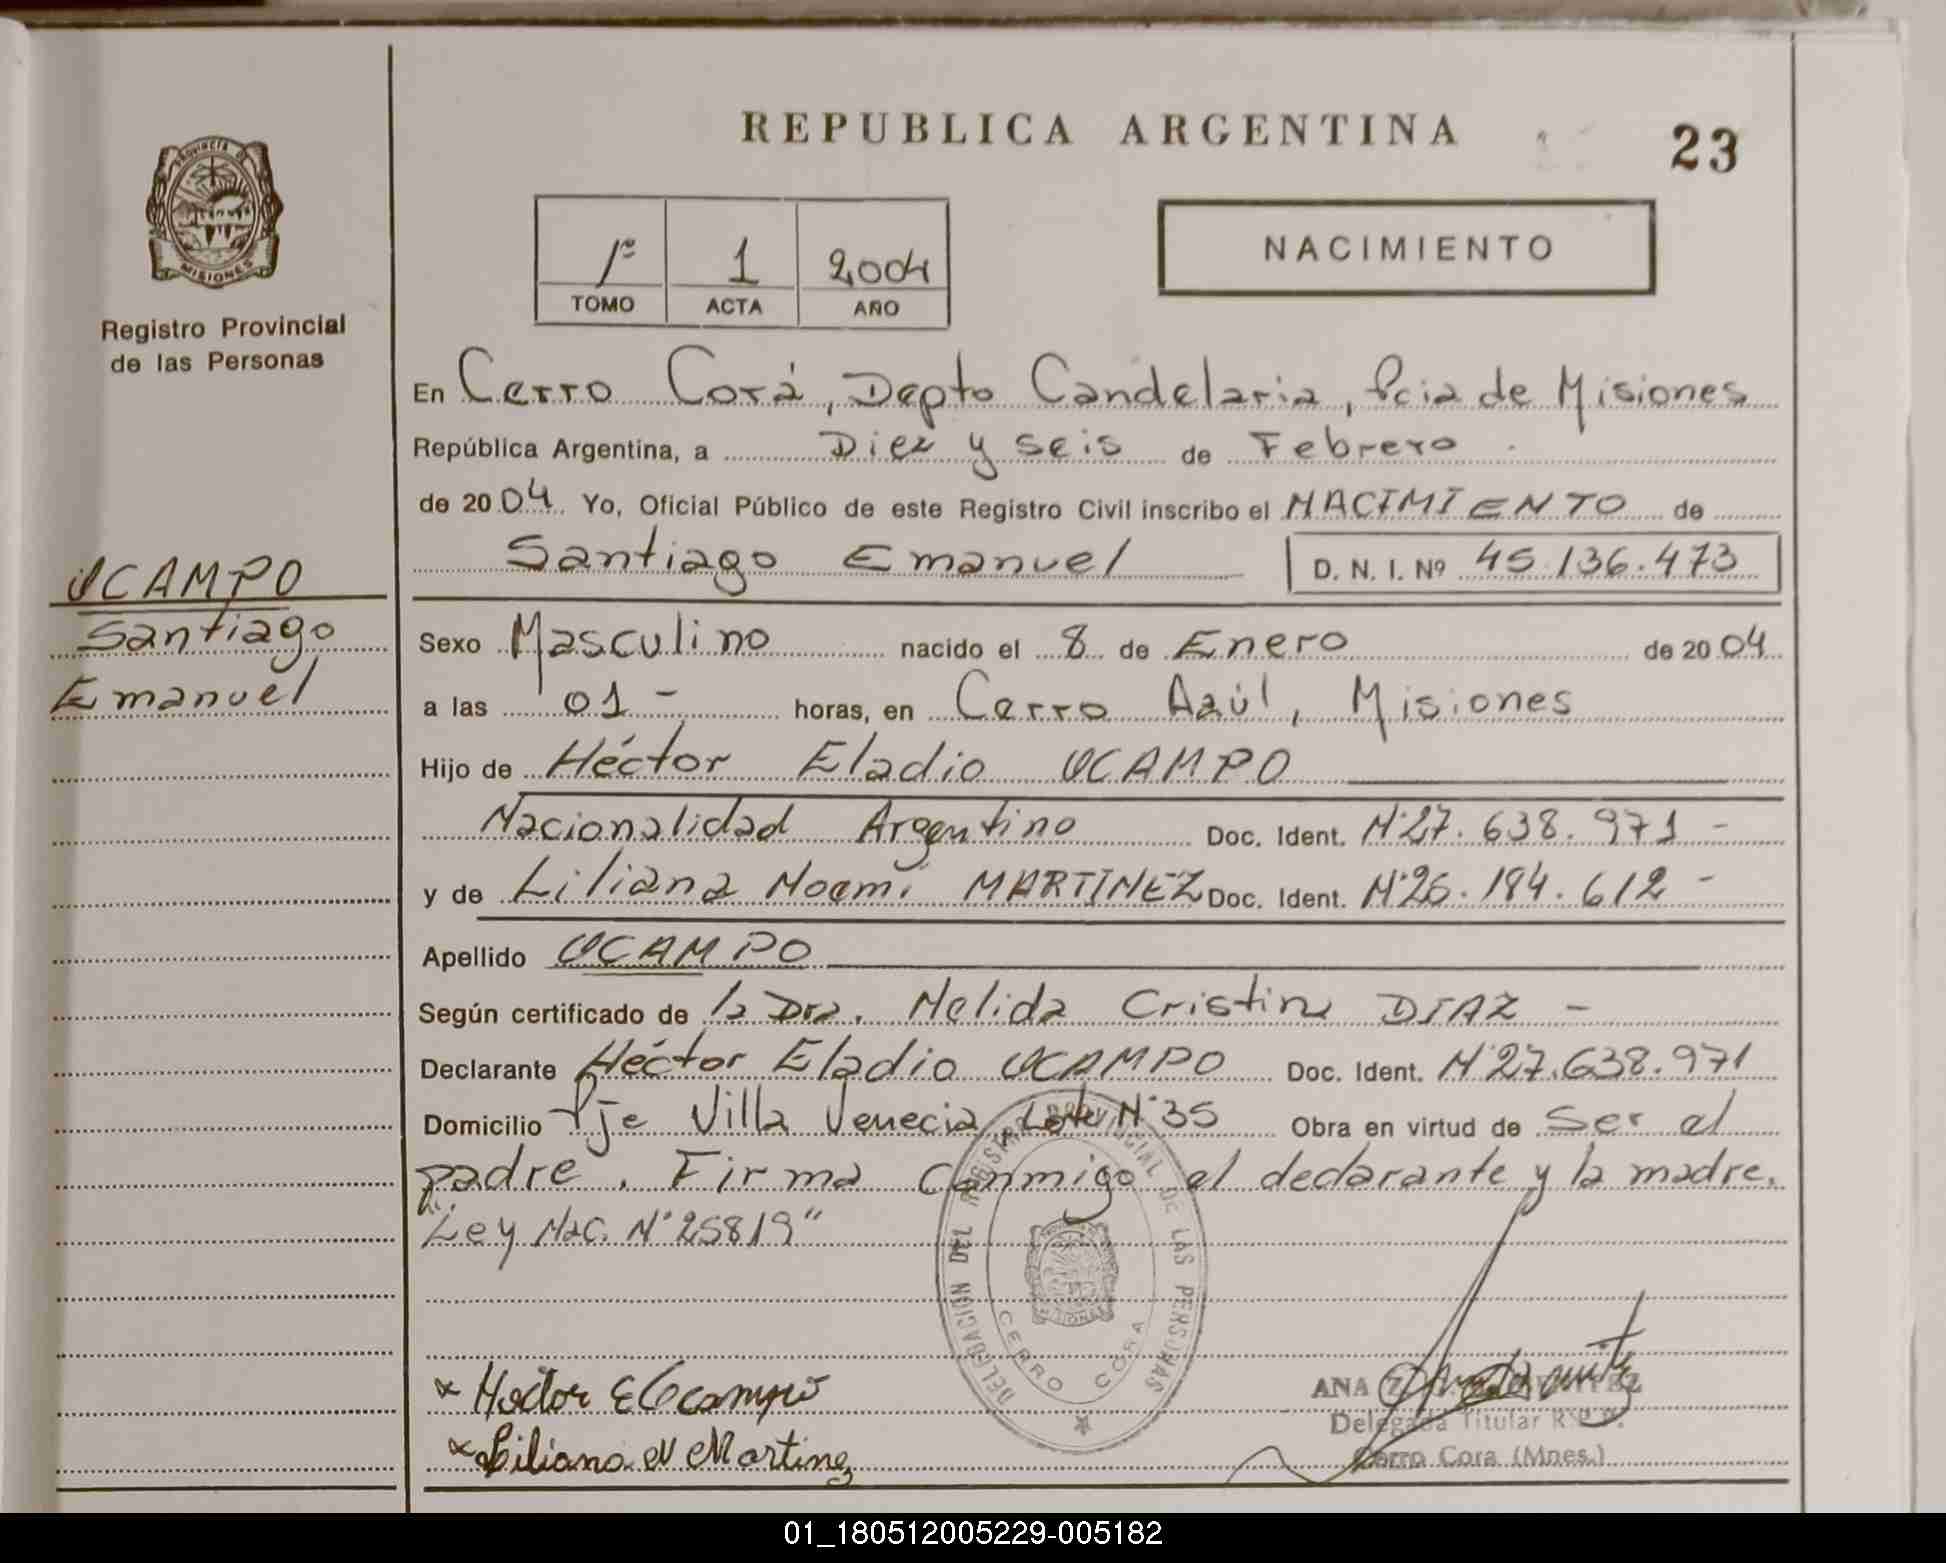 REPUBLICA ARGENTINA
23
PROVINCIA DE
MISIONES
Registro Provincial
de las Personas
1º 1 2004
TOMO ACTA AÑO
NACIMIENTO
En Cerro Corá, Depto Candelaria, Pcia de Misiones
República Argentina, a Diez y seis de Febrero
de 2004 Yo, Oficial Público de este Registro Civil inscribo el NACIMIENTO de
Santiago Emanuel D. N. I. Nº 45.136.473
OCAMPO
Santiago
Emanuel
Sexo Masculino nacido el 8 de Enero de 2004
a las 01 - horas, en Cerro Azúl, Misiones
Hijo de Héctor Eladio OCAMPO
Nacionalidad Argentino Doc. Ident. N°27.638.971 -
y de Liliana Noemi MARTINEZ Doc. Ident. N°26.184.612 -
Apellido OCAMPO
Según certificado de la Dra. Nelida Cristina DIAZ -
Declarante Héctor Eladio OCAMPO Doc. Ident. N°27.638.971
Domicilio Pje Villa Venecia, Lote N°35 Obra en virtud de Ser el
padre. Firma conmigo el declarante y la madre.
"Ley Nac. N°25819"
DELEGACION DEL REGISTRO PROVINCIAL DE LAS PERSONAS
CERRO CORA
Hector E Ocampo
Liliana N Martinez
ANA
Delegada Titular R.P.P.
Cerro Cora (Mnes.)
01_180512005229-005182